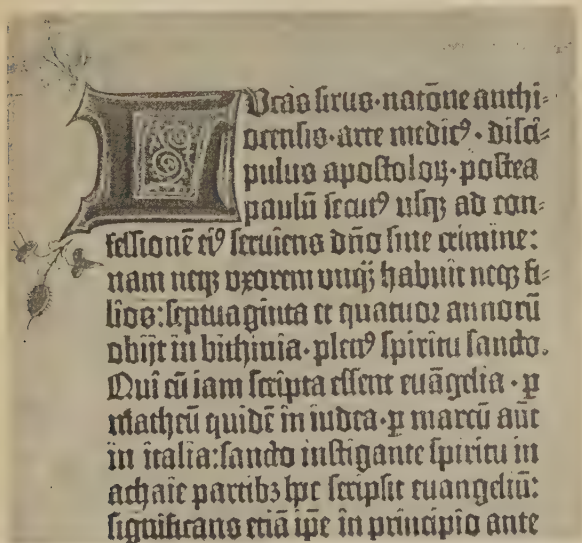 LUcas sirus·natōne anthi⸗
ocensis·arte medicꝰ·disci⸗
pulus apostoloꝝ·postea
paulū secutꝰ usqꝫ ad con⸗
fessionē eiꝰ seruiens dn̄o sine crimine:
nam neqꝫ uxorem unqꝫ̄ habuit neqꝫ fi⸗
lios:septuaginta et quatuor annorū
obijt in bithinia·plenꝰ spiritu sancto.
Qui cū iam scripta essent euāgelia·ꝑ
matheū quidē in iudea·ꝑ marcū aūt
in italia:sancto instigante spiritu in
achaie partibꝫ hoc scripsit euangeliū:
significans etiā ip̄e in principio ante